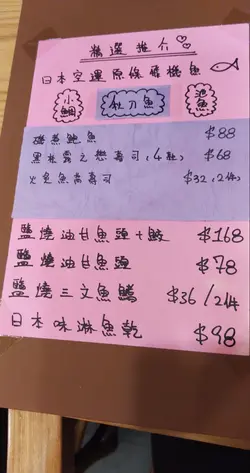 精選推介
日本空運原條燒機魚
小鯛
秋刀魚
池魚
磯煮鮑魚
黑松露之戀壽司(4駄) $68
$88
火炙魚高壽司 $32(2件)
鹽燒油甘魚頭+鮫 $168
鹽燒油甘魚頭 $78
鹽燒三文魚鰭 $36/2件
日本味淋魚乾 $98